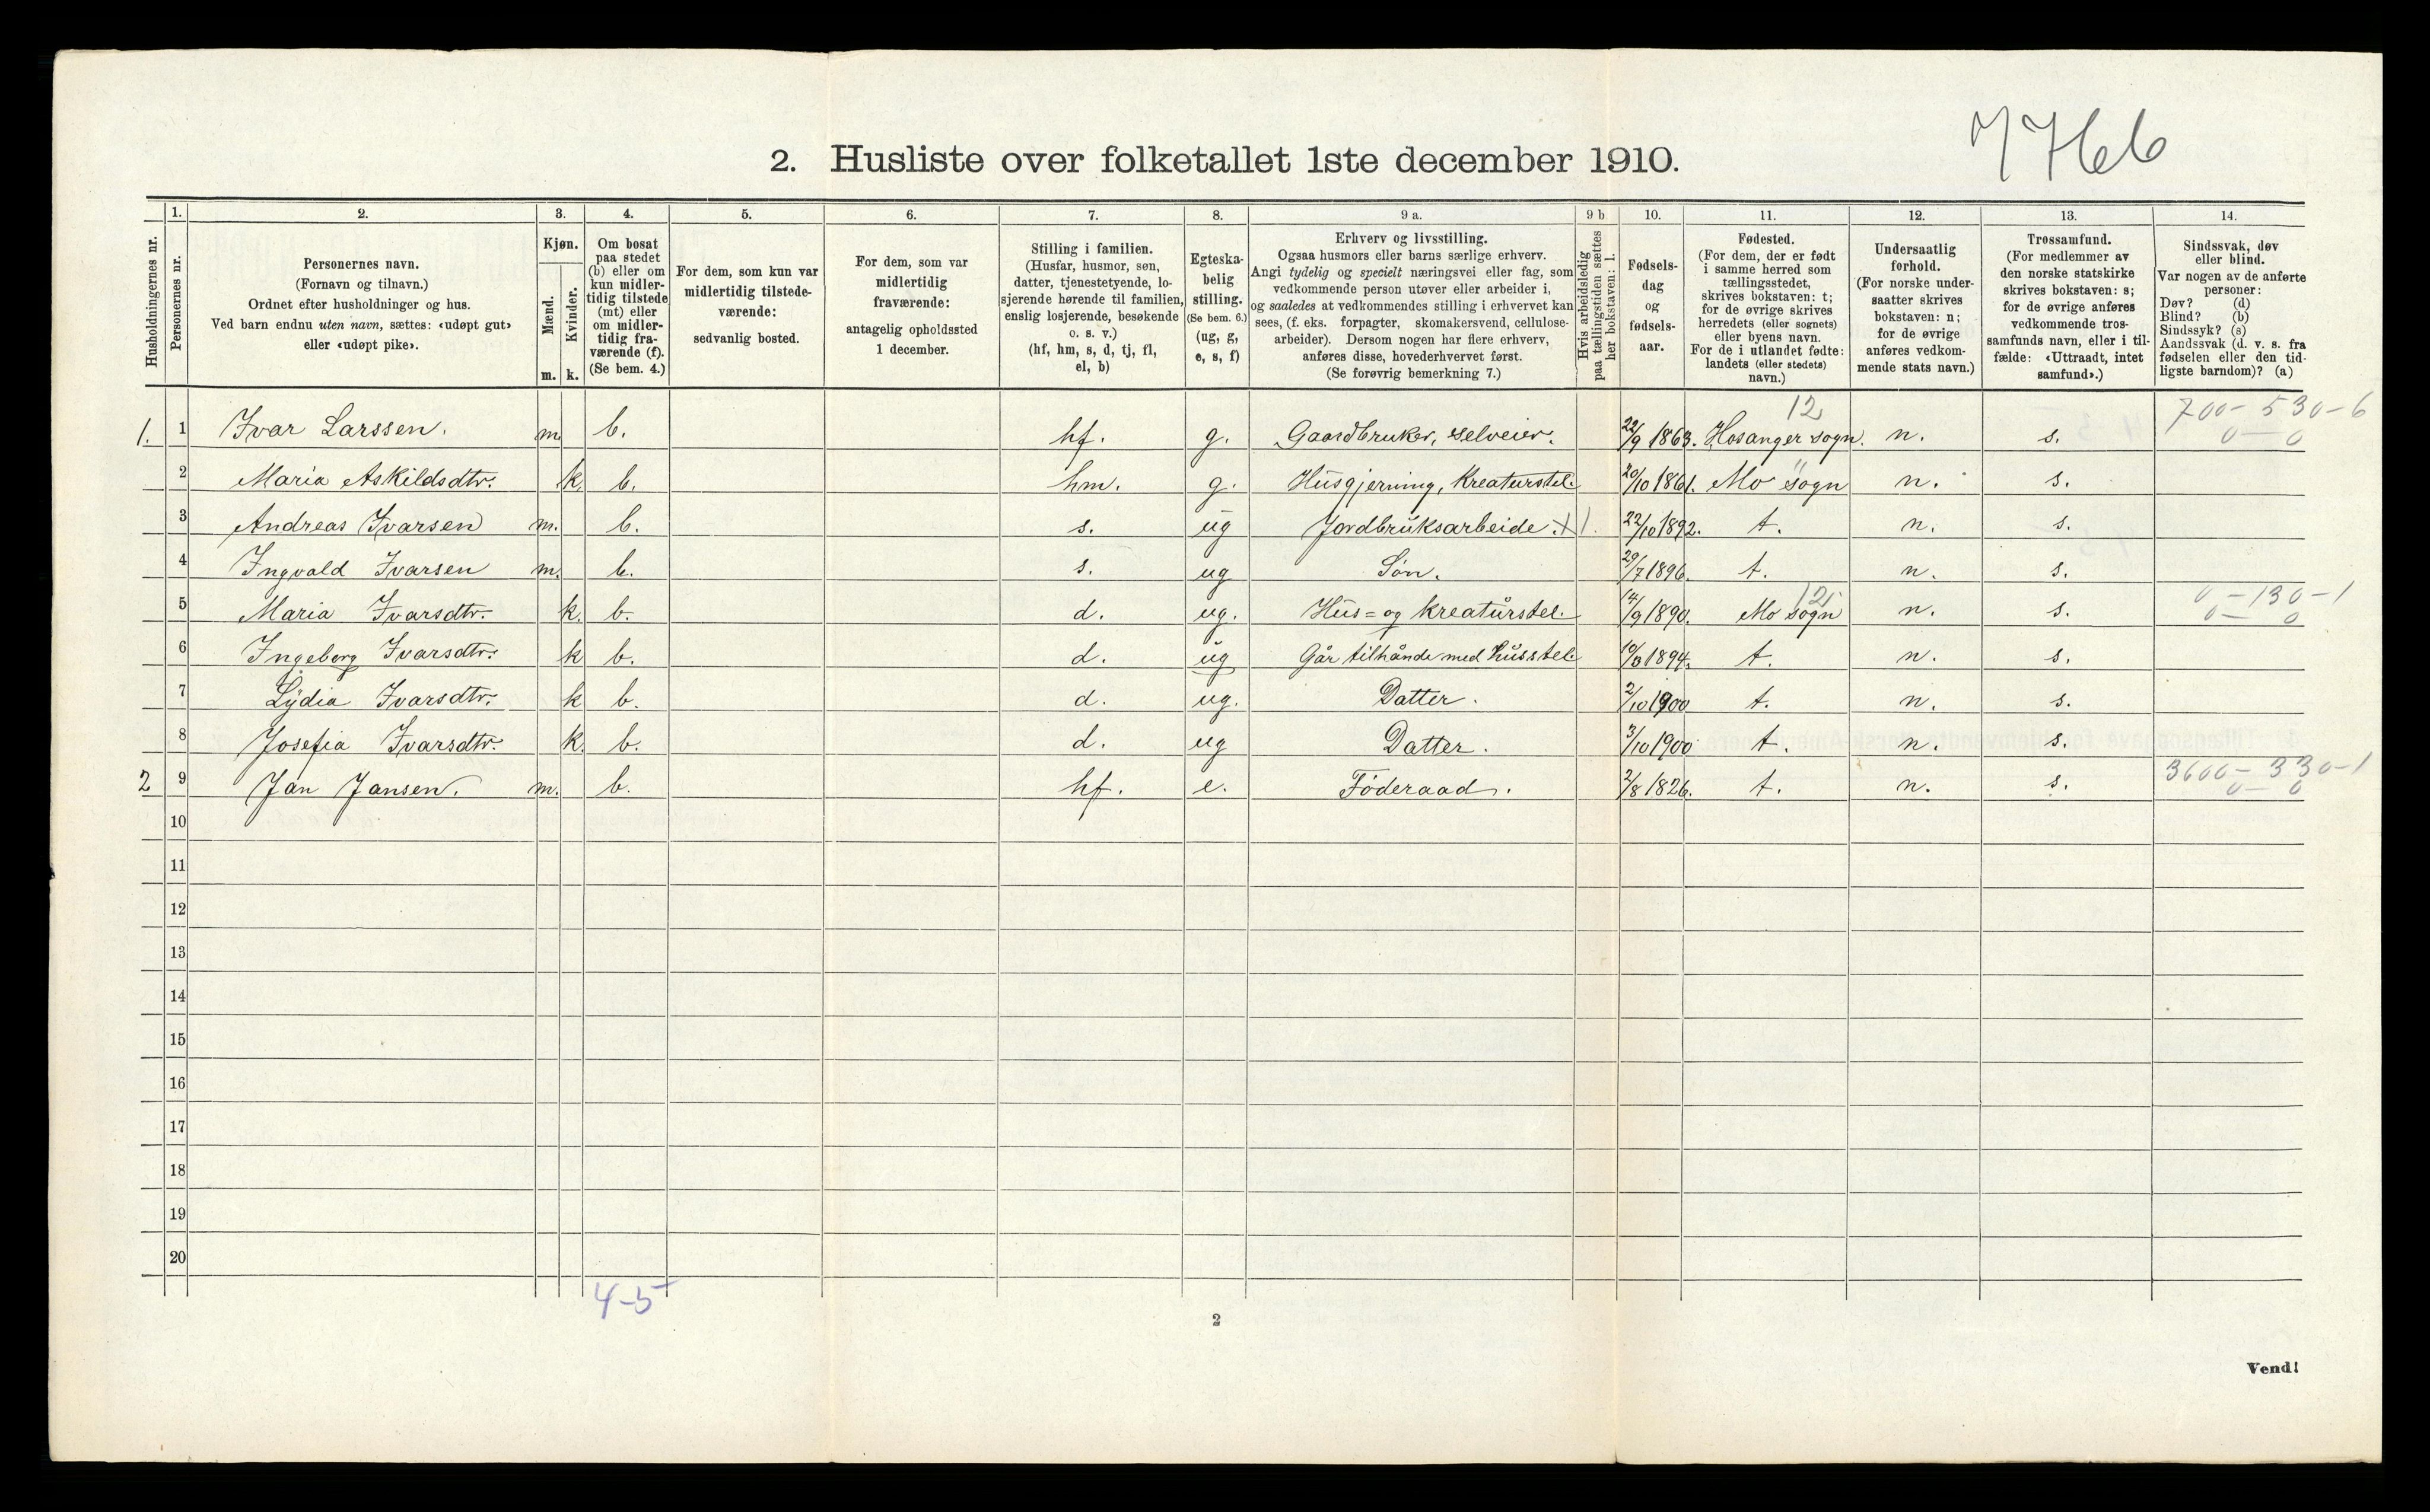 7766
2. Husliste over folketallet 1ste december 1910.
1. 2. 3. 4. 5. 6. 7. 8. 9 a. 9 b 10. 11. 12. 13. 14.
Husholdningernes nr.
Personernes nr.
Personernes navn.
(Fornavn og tilnavn.)
Ordnet efter husholdninger og hus.
Ved barn endnu uten navn, sættes: «udøpt gut»
eller «udøpt pike».
Kjøn.
Mænd.
Kvinder.
m. k.
Om bosat
paa stedet
(b) eller om
kun midler-
tidig tilstede
(mt) eller
om midler-
tidig fra-
værende (f).
(Se bem. 4.)
For dem, som kun var
midlertidig tilstede-
værende:
sedvanlig bosted.
For dem, som var
midlertidig
fraværende:
antagelig opholdssted
1 december.
Stilling i familien.
(Husfar, husmor, søn,
datter, tjenestetyende, lo-
sjerende hørende til familien,
enslig losjerende, besøkende
o. s. v.)
(hf, hm, s, d, tj, fl,
el, b)
Egteska-
belig
stilling.
(Se bem. 6.)
(ug, g,
e, s, f)
Erhverv og livsstilling.
Ogsaa husmors eller barns særlige erhverv.
Angi tydelig og specielt næringsvei eller fag, som
vedkommende person utøver eller arbeider i,
og saaledes at vedkommendes stilling i erhvervet kan
sees, (f. eks. forpagter, skomakersvend, cellulose-
arbeider). Dersom nogen har flere erhverv,
anføres disse, hovederhvervet først.
(Se forøvrig bemerkning 7.)
Hvis arbeidsledig
paa tællingstiden sættes
her bokstaven: l.
Fødsels-
dag
og
fødsels-
aar.
Fødested.
(For dem, der er født
i samme herred som
tællingsstedet,
skrives bokstaven: t;
for de øvrige skrives
herredets (eller sognets)
eller byens navn.
For de i utlandet fødte:
landets (eller stedets)
navn.)
Undersaatlig
forhold.
(For norske under-
saatter skrives
bokstaven: n;
for de øvrige
anføres vedkom-
mende stats navn.)
Trossamfund.
(For medlemmer av
den norske statskirke
skrives bokstaven: s;
for de øvrige anføres
vedkommende tros-
samfunds navn, eller i til-
fælde: «Uttraadt, intet
samfund».)
Sindssvak, døv
eller blind.
Var nogen av de anførte
personer:
Døv? (d)
Blind? (b)
Sindssyk? (s)
Aandssvak (d. v. s. fra
fødselen eller den tid-
ligste barndom)? (a)
12 700-530-6
1. 1 Ivar Larssen. m. b. hf. g. Gaardbruker, selveier. 22/9 1863. Hosanger sogn. n. s. 0-0
2 Maria Askildsdtr. k. b. hm. g. Husgjerning, Kreaturstel. 20/10 1861. Mo sogn n. s.
3 Andreas Ivarsen m. b. s. ug Jordbruksarbeide. X 1. 22/10 1892. t. n. s.
4 Ingvald Ivarsen m. b. s. ug Søn. 29/7 1896. t. n. s.
12 0-130-1
5 Maria Ivarsdtr. k. b. d. ug. Hus= og kreaturstel. 14/9 1890. Mo sogn n. s. 0-0
6 Ingeborg Ivarsdtr. k b. d. ug Går tilhånde med husstel. 1894. t. n. s.
7 Lydia Ivarsdtr. k b. d. ug. Datter. 2/10 1900 t. n. s.
8 Josefia Ivarsdtr. k. b. d. ug Datter. 3/10 1900 t. n. s.
3600-330-1
2 9 Jan Jansen. m. b. hf. e. Föderaad. 2/8 1826. t. n. s. 0-0
10
11
12
13
14
15
16
17
18
19
20
4-5
2
Vend!